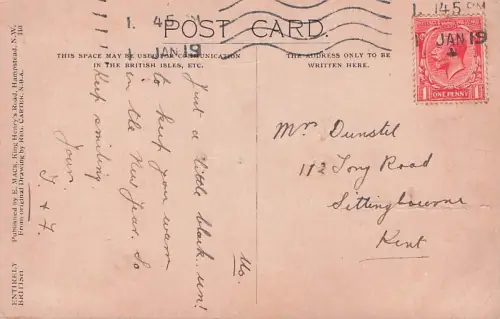 POST CARD.
THIS SPACE MAY BE USED FOR COMMUNICATION
IN THE BRITISH ISLES, ETC.
THE ADDRESS ONLY TO BE
WRITTEN HERE.
1. 45 PM
1 JAN 19
1. 45 PM
1 JAN 19
1
ONE PENNY
1
Just a little black-un!
to keep you warm
in the New Year. So
Keep smiling.
Your
Mr Dunstil
112 Tony Road
Sittingbourne
Kent
Published by E. MACK, King Henry's Road, Hampstead, N.W.
From original Drawing by REG. CARTER, N.B.A.
ENTIRELY
BRITISH